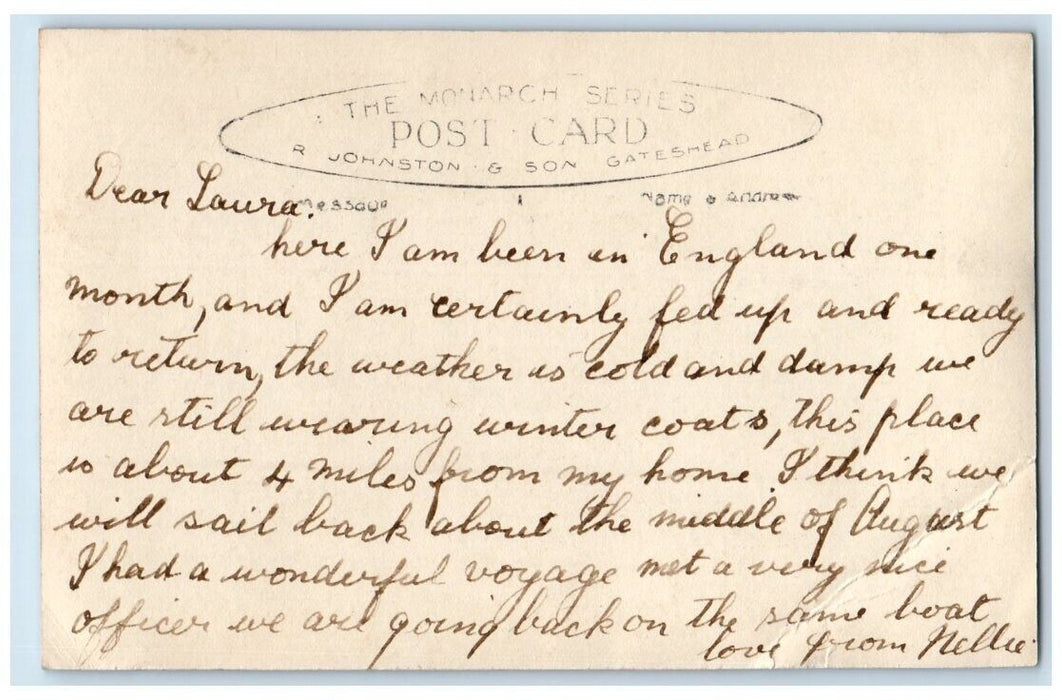 THE MONARCH SERIES
POST CARD
R JOHNSTON & SON GATESHEAD
Message Name & Address
Dear Laura.
here I am been in England one
month, and I am certainly fed up and ready
to return, the weather is cold and damp we
are still wearing winter coats, this place
is about 4 miles from my home. I think we
will sail back about the middle of August
I had a wonderful voyage met a very nice
officer we are going back on the same boat
love from Nellie